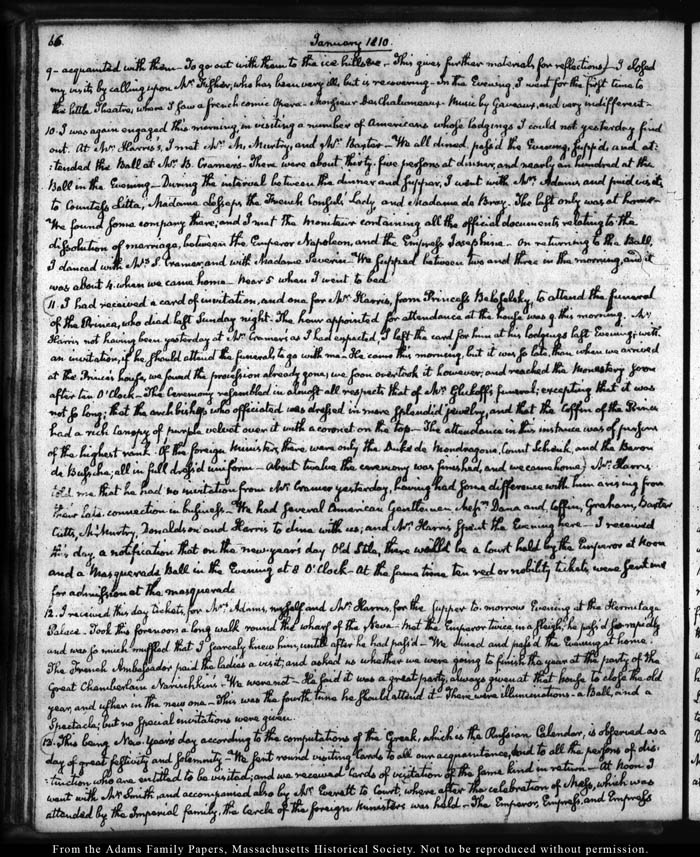 66. January 1810.
9 - acquainted with them - To go out with them to the ice hills &c. - This gives further materials for reflections) - I closed
my visits by calling upon Mr. Fisher, who has been very ill, but is recovering - In the Evening I went for the first time to
the little Theatre, where I saw a french comic Opera - Monsieur Deschalumeaux - Music by Gaveaux, and very indifferent -
10. I was again engaged this morning, in visiting a number of Americans whose lodgings I could not yesterday find
out. At Mr. Harris's, I met Mr. Mc. Murtry, and Mr. Baxter - We all dined, pass'd the Evening, supp'd, and at-
:tended the Ball at Mr. B. Cramer's - There were about thirty-five persons at dinner, and nearly an hundred at the
Ball in the Evening - During the interval between the dinner and supper, I went with Mrs. Adams, and paid visits
to Countess Litta, Madame Lesseps the French Consul's Lady, and Madame de Bray. The last only was at home -
We found some company there; and I met the Moniteur containing all the official documents relating to the
dissolution of marriage, between the Emperor Napoleon, and the Empress Josephine - On returning to the Ball,
I danced with Mrs. S. Cramer and with Madame Severin - We supped between two and three in the morning, and it
was about 4 when we came home - Near 5 when I went to bed
11. I had received a card of invitation, and one for Mr. Harris, from Princess Beloselsky, to attend the funeral
of the Prince, who died last Sunday night. The hour appointed for attendance at the house was 9 this morning. Mr.
Harris not having been yesterday at Mr. Cramer's as I had expected, I left the card for him at his lodgings last Evening; with
an invitation, if he should attend the funeral, to go with me - He came this morning, but it was so late, that when we arrived
at the Prince's house, we found the procession already gone; we soon overtook it however, and reached the Monastery soon
after ten O'Clock - The Ceremony resembled in almost all respects that of Mr. Glukoff's funeral; excepting that it was
not so long; that the arch bishop who officiated was dressed in more splendid jewelry, and that the Coffin of the Prince
had a rich Canopy of purple velvet over it with a coronet on the top - The attendance in this instance was of persons
of the highest rank. Of the foreign Ministers, there were only the Duke de Mondragone, Count Schenk, and the Baron
de Bussche; all in full dress'd uniform - About twelve the ceremony was finished, and we came home) Mr. Harris
told me that he had no invitation from Mr. Cramer yesterday, having had some difference with him arising from
their late connection in business - We had several American Gentlemen Messrs. Dana and Coffin, Graham, Baxter
Cutts, McMurtry, Donaldson and Harris to dine with us; and Mr. Harris spent the Evening here - I received
this day a notification that on the new year's day Old Stile, there would be a Court held by the Emperor at Noon
and a Masquerade Ball in the Evening at 8 O'Clock - At the same time ten red or nobility tickets were sent me
for admission at the masquerade
12. I received this day tickets, for Mrs. Adams, myself and Mr. Harris, for the supper to-morrow Evening at the Hermitage
Palace. Took this forenoon a long walk round the wharf of the Neva - Met the Emperor twice in a sleigh; he pass'd so rapidly
and was so much muffled that I scarcely knew him, until after he had pass'd - We dined and pass'd the Evening at home.
The French Ambassador paid the ladies a visit; and asked us whether we were going to finish the year at the party of the
Great Chamberlain Narishkin's - We were not - He said it was a great party, always given at that house to close the old
year, and usher in the new one - This was the fourth time he should attend it - There were illuminations - a Ball, and a
Spectacle; but no special invitations were given.
13. This being New-Year's day according to the computations of the Greek, which is the Russian Calendar, is observed as a
day of great festivity and solemnity - We sent round visiting Cards to all our acquaintance, and to all the persons of dis-
:tinction who are entitled to be visited; and we received Cards of visitation of the same kind in return - At Noon I
went with Mr. Smith, and accompanied also by Mr. Everett to Court, where after the celebration of Mass, which was
attended by the Imperial family, the Circle of the foreign Ministers was held - The Emperor, Empress, and Empress
From the Adams Family Papers, Massachusetts Historical Society. Not to be reproduced without permission.